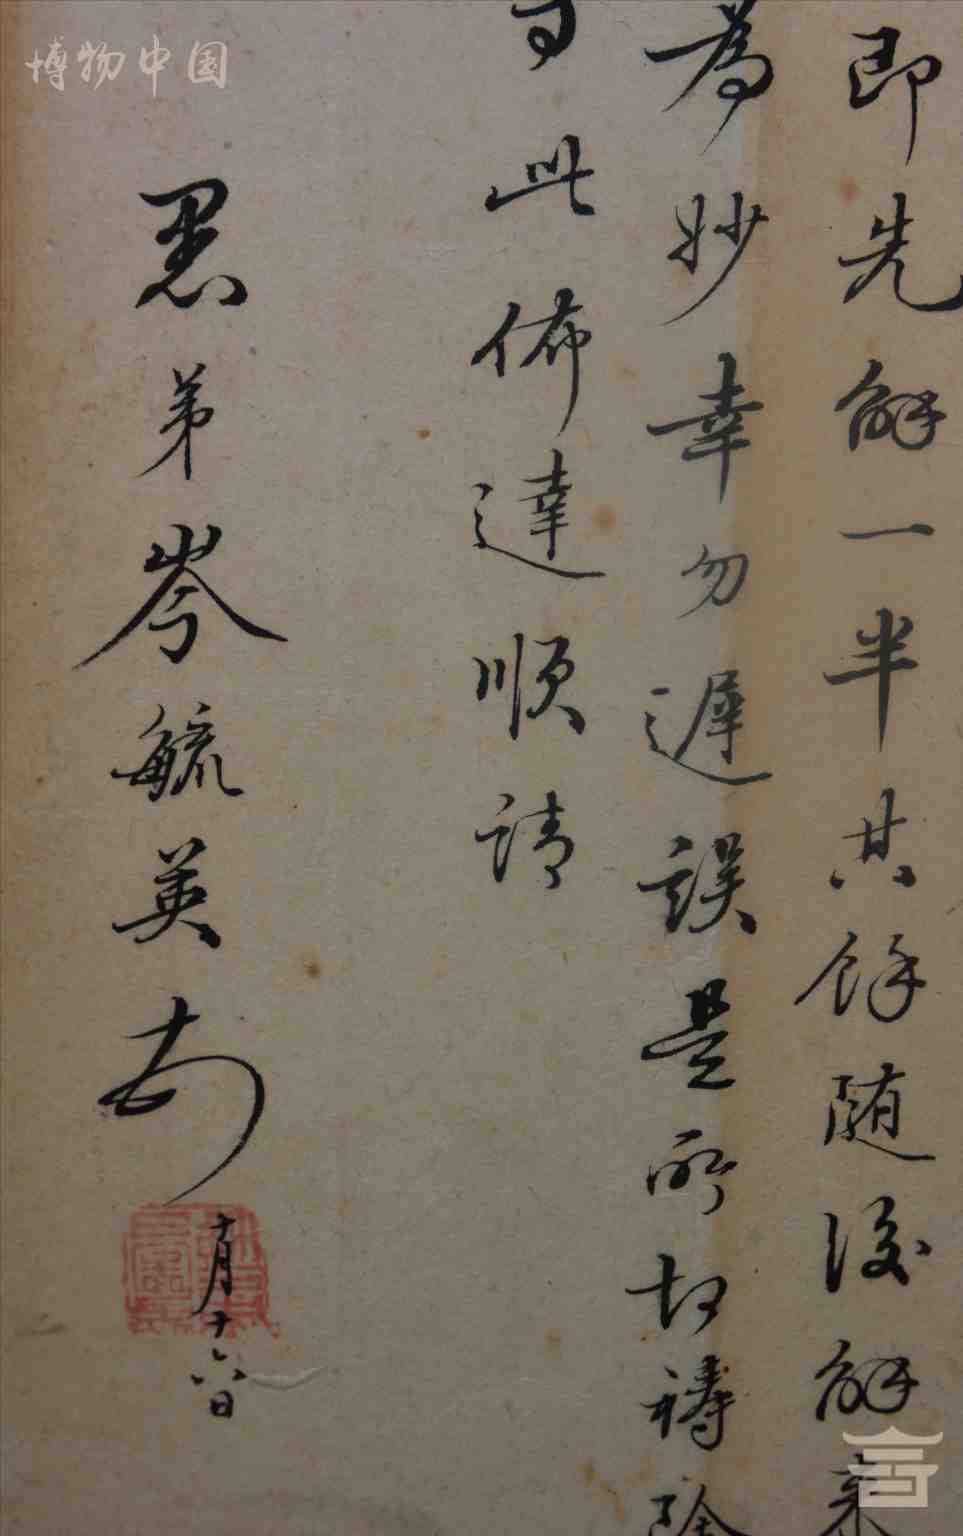 博物中国
即先解一半其餘随後解来
為妙幸勿遲誤是所切禱除
此佈達順請
愚弟岑毓英
十月十六日